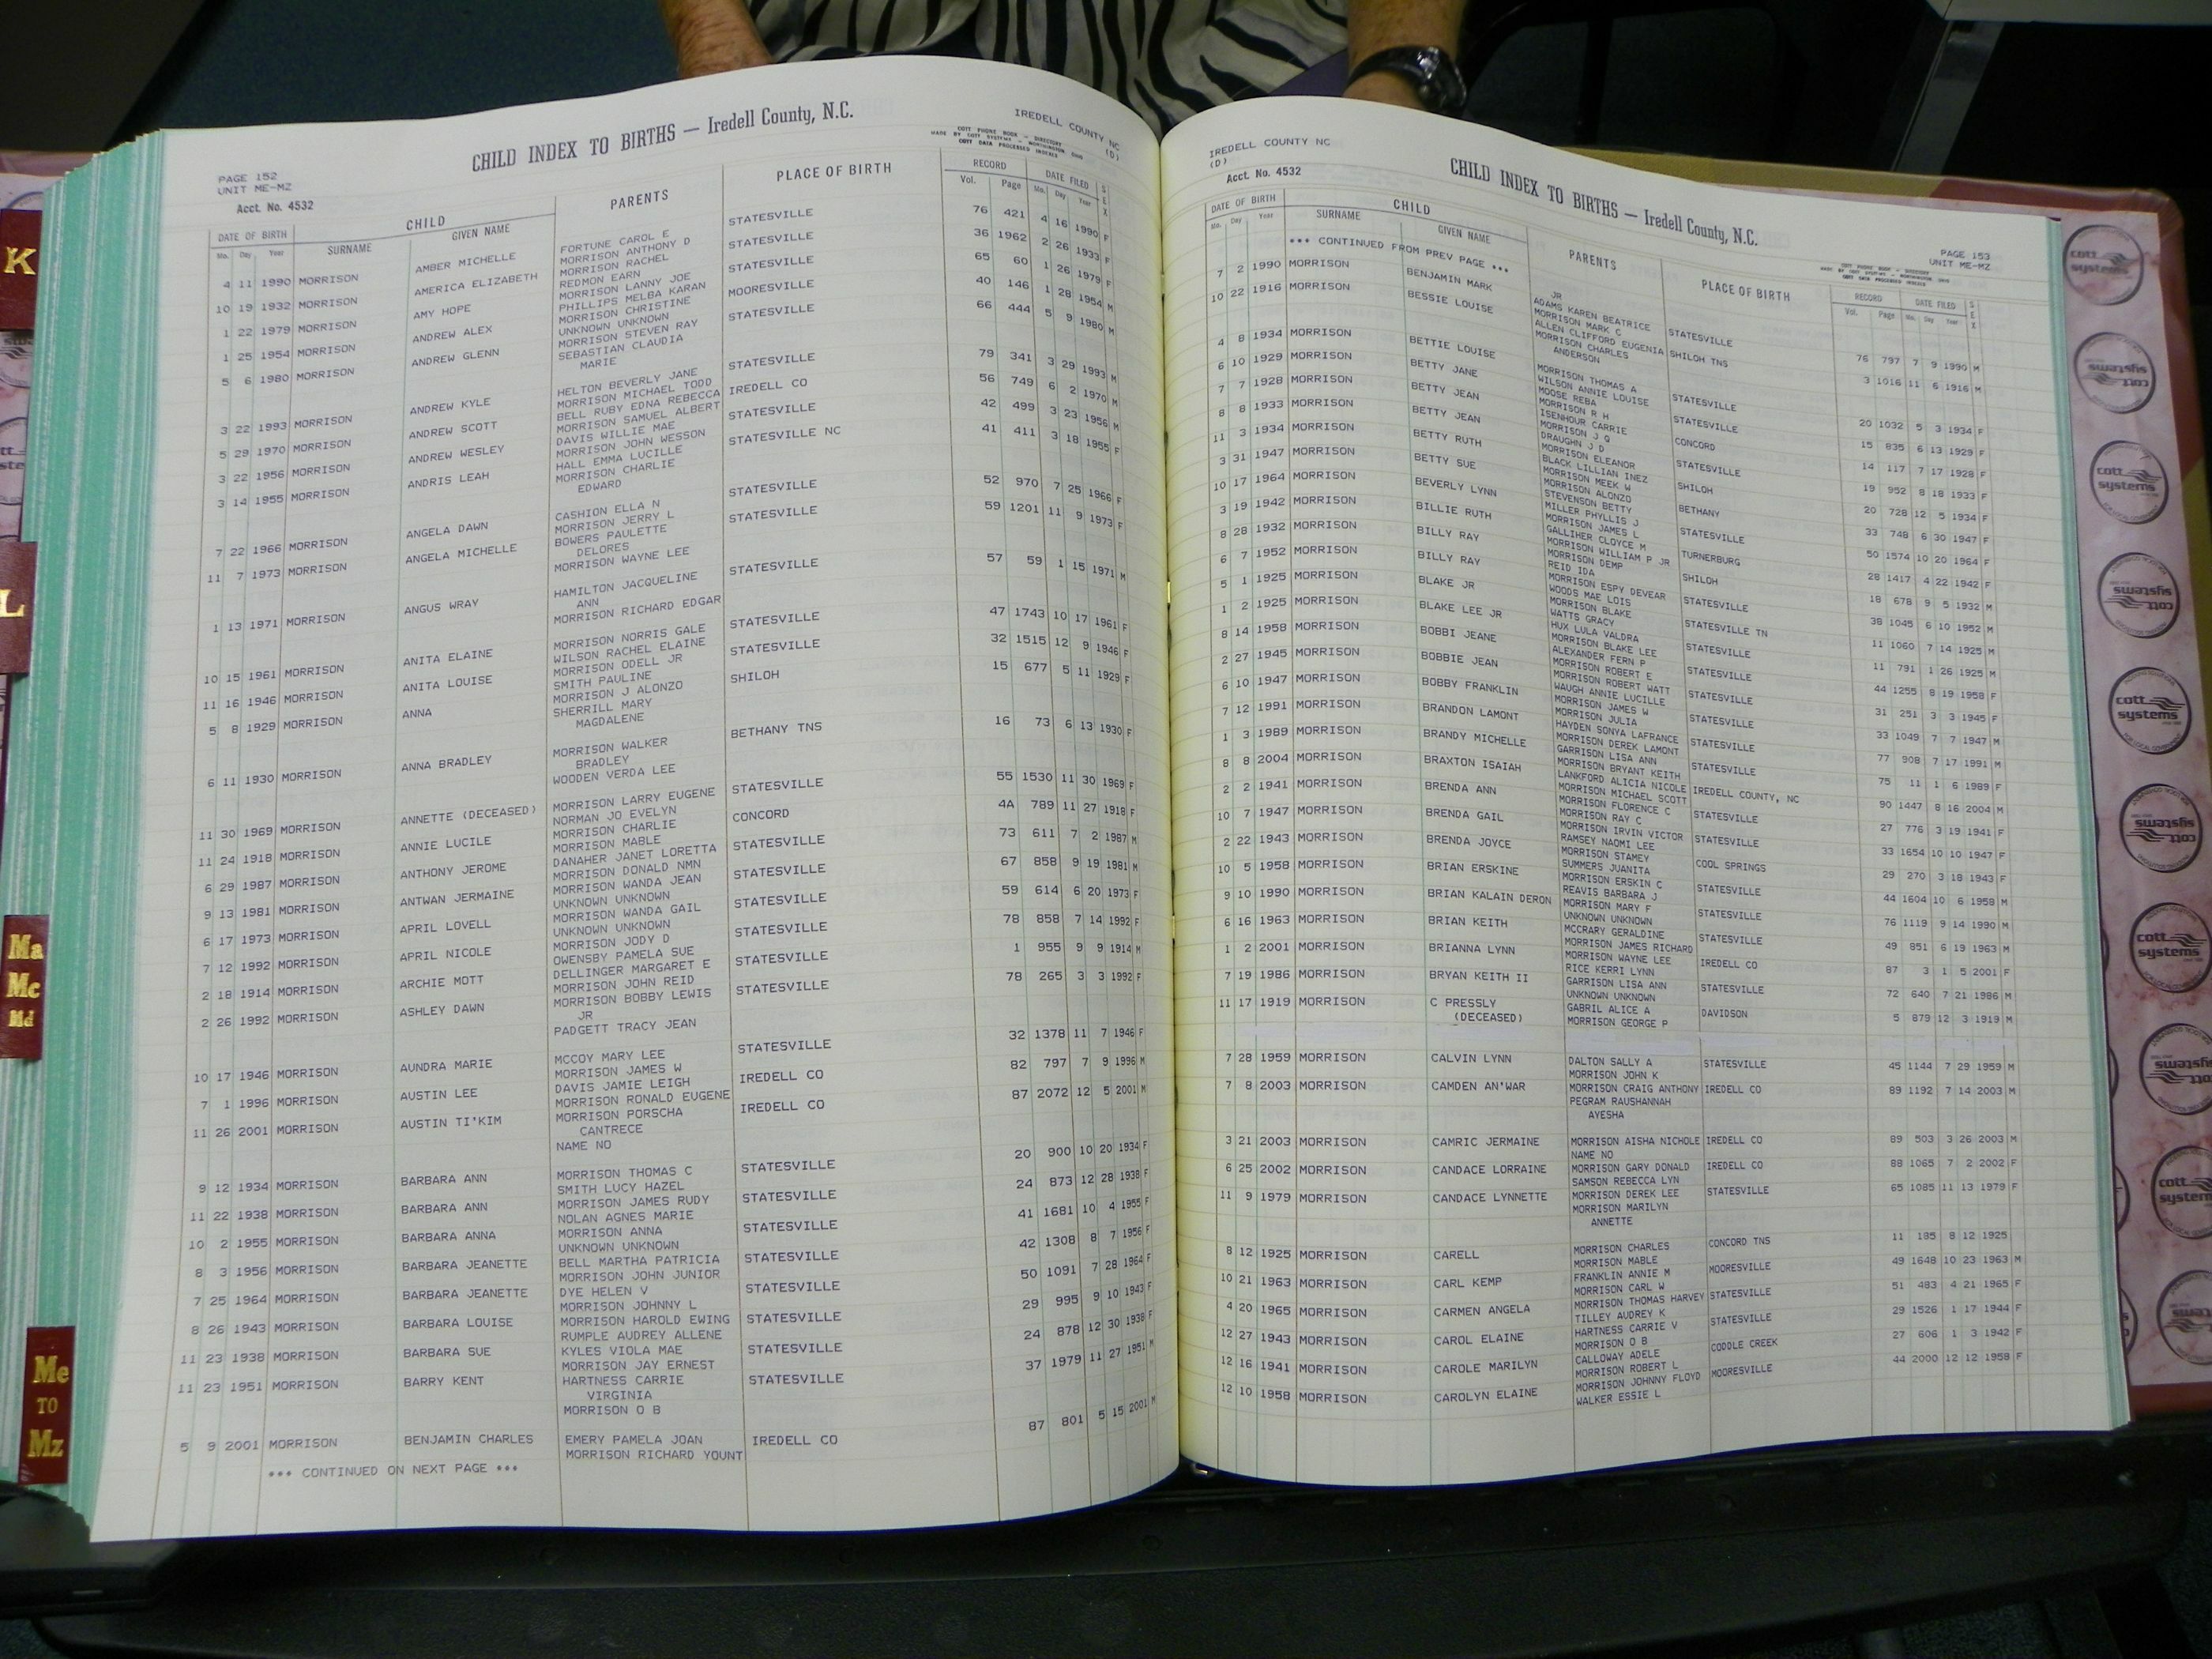 CHILD INDEX TO BIRTHS — Iredell County, N.C.
IREDELL COUNTY NC
(D)
COTT PHONE BOOK - DIRECTORY
MADE BY COTT SYSTEMS - WORTHINGTON OHIO
COTT DATA PROCESSED INDEXES
PAGE 152
UNIT ME-MZ
Acct. No. 4532
DATE OF BIRTH CHILD PARENTS PLACE OF BIRTH RECORD DATE FILED SEX
Mo. Day Year SURNAME GIVEN NAME Vol. Page Mo. Day Year
4 11 1990 MORRISON AMBER MICHELLE FORTUNE CAROL E STATESVILLE 76 421 4 16 1990 F
MORRISON ANTHONY D
10 19 1932 MORRISON AMERICA ELIZABETH MORRISON RACHEL STATESVILLE 36 1962 2 26 1933 F
REDMON EARN
1 22 1979 MORRISON AMY HOPE MORRISON LANNY JOE STATESVILLE 65 60 1 26 1979 F
PHILLIPS MELBA KARAN
1 25 1954 MORRISON ANDREW ALEX MORRISON CHRISTINE MOORESVILLE 40 146 1 28 1954 M
UNKNOWN UNKNOWN
5 6 1980 MORRISON ANDREW GLENN MORRISON STEVEN RAY STATESVILLE 66 444 5 9 1980 M
SEBASTIAN CLAUDIA
MARIE
3 22 1993 MORRISON ANDREW KYLE HELTON BEVERLY JANE STATESVILLE 79 341 3 29 1993 M
MORRISON MICHAEL TODD
5 29 1970 MORRISON ANDREW SCOTT BELL RUBY EDNA REBECCA IREDELL CO 56 749 6 2 1970 M
MORRISON SAMUEL ALBERT
3 22 1956 MORRISON ANDREW WESLEY DAVIS WILLIE MAE STATESVILLE 42 499 3 23 1956 M
MORRISON JOHN WESSON
3 14 1955 MORRISON ANDRIS LEAH HALL EMMA LUCILLE STATESVILLE NC 41 411 3 18 1955 F
MORRISON CHARLIE
EDWARD
7 22 1966 MORRISON ANGELA DAWN CASHION ELLA N STATESVILLE 52 970 7 25 1966 F
MORRISON JERRY L
11 7 1973 MORRISON ANGELA MICHELLE BOWERS PAULETTE STATESVILLE 59 1201 11 9 1973 F
DELORES
MORRISON WAYNE LEE
1 13 1971 MORRISON ANGUS WRAY HAMILTON JACQUELINE STATESVILLE 57 59 1 15 1971 M
ANN
MORRISON RICHARD EDGAR
10 15 1961 MORRISON ANITA ELAINE MORRISON NORRIS GALE STATESVILLE 47 1743 10 17 1961 F
WILSON RACHEL ELAINE
11 16 1946 MORRISON ANITA LOUISE MORRISON ODELL JR STATESVILLE 32 1515 12 9 1946 F
SMITH PAULINE
5 8 1929 MORRISON ANNA MORRISON J ALONZO SHILOH 15 677 5 11 1929 F
SHERRILL MARY
MAGDALENE
6 11 1930 MORRISON ANNA BRADLEY MORRISON WALKER BETHANY TNS 16 73 6 13 1930 F
BRADLEY
WOODEN VERDA LEE
11 30 1969 MORRISON ANNETTE (DECEASED) MORRISON LARRY EUGENE STATESVILLE 55 1530 11 30 1969 F
NORMAN JO EVELYN
11 24 1918 MORRISON ANNIE LUCILE MORRISON CHARLIE CONCORD 4A 789 11 27 1918 F
MORRISON MABLE
6 29 1987 MORRISON ANTHONY JEROME DANAHER JANET LORETTA STATESVILLE 73 611 7 2 1987 M
MORRISON DONALD NMN
9 13 1981 MORRISON ANTWAN JERMAINE MORRISON WANDA JEAN STATESVILLE 67 858 9 19 1981 M
UNKNOWN UNKNOWN
6 17 1973 MORRISON APRIL LOVELL MORRISON WANDA GAIL STATESVILLE 59 614 6 20 1973 F
UNKNOWN UNKNOWN
7 12 1992 MORRISON APRIL NICOLE MORRISON JODY D STATESVILLE 78 858 7 14 1992 F
OWENSBY PAMELA SUE
2 18 1914 MORRISON ARCHIE MOTT DELLINGER MARGARET E STATESVILLE 1 955 9 9 1914 M
MORRISON JOHN REID
2 26 1992 MORRISON ASHLEY DAWN MORRISON BOBBY LEWIS STATESVILLE 78 265 3 3 1992 F
JR
PADGETT TRACY JEAN
10 17 1946 MORRISON AUNDRA MARIE MCCOY MARY LEE STATESVILLE 32 1378 11 7 1946 F
MORRISON JAMES W
7 1 1996 MORRISON AUSTIN LEE DAVIS JAMIE LEIGH IREDELL CO 82 797 7 9 1996 M
MORRISON RONALD EUGENE
11 26 2001 MORRISON AUSTIN TI'KIM MORRISON PORSCHA IREDELL CO 87 2072 12 5 2001 M
CANTRECE
NAME NO
9 12 1934 MORRISON BARBARA ANN MORRISON THOMAS C STATESVILLE 20 900 10 20 1934 F
SMITH LUCY HAZEL
11 22 1938 MORRISON BARBARA ANN MORRISON JAMES RUDY STATESVILLE 24 873 12 28 1938 F
NOLAN AGNES MARIE
10 2 1955 MORRISON BARBARA ANNA MORRISON ANNA STATESVILLE 41 1681 10 4 1955 F
UNKNOWN UNKNOWN
8 3 1956 MORRISON BARBARA JEANETTE BELL MARTHA PATRICIA STATESVILLE 42 1308 8 7 1956 F
MORRISON JOHN JUNIOR
7 25 1964 MORRISON BARBARA JEANETTE DYE HELEN V STATESVILLE 50 1091 7 28 1964 F
MORRISON JOHNNY L
8 26 1943 MORRISON BARBARA LOUISE MORRISON HAROLD EWING STATESVILLE 29 995 9 10 1943 F
RUMPLE AUDREY ALLENE
11 23 1938 MORRISON BARBARA SUE KYLES VIOLA MAE STATESVILLE 24 878 12 30 1938 F
MORRISON JAY ERNEST
11 23 1951 MORRISON BARRY KENT HARTNESS CARRIE STATESVILLE 37 1979 11 27 1951 M
VIRGINIA
MORRISON O B
5 9 2001 MORRISON BENJAMIN CHARLES EMERY PAMELA JOAN IREDELL CO 87 801 5 15 2001 M
MORRISON RICHARD YOUNT
*** CONTINUED ON NEXT PAGE ***
IREDELL COUNTY NC
(D)
Acct. No. 4532
CHILD INDEX TO BIRTHS — Iredell County, N.C.
PAGE 153
UNIT ME-MZ
COTT PHONE BOOK - DIRECTORY
MADE BY COTT SYSTEMS - WORTHINGTON OHIO
COTT DATA PROCESSED INDEXES
DATE OF BIRTH CHILD PARENTS PLACE OF BIRTH RECORD DATE FILED SEX
Mo. Day Year SURNAME GIVEN NAME Vol. Page Mo. Day Year
*** CONTINUED FROM PREV PAGE ***
JR
7 2 1990 MORRISON BENJAMIN MARK ADAMS KAREN BEATRICE STATESVILLE 76 797 7 9 1990 M
MORRISON MARK C
10 22 1916 MORRISON BESSIE LOUISE ALLEN CLIFFORD EUGENIA SHILOH TNS 3 1016 11 6 1916 M
MORRISON CHARLES
ANDERSON
4 8 1934 MORRISON BETTIE LOUISE MORRISON THOMAS A STATESVILLE 20 1032 5 3 1934 F
WILSON ANNIE LOUISE
6 10 1929 MORRISON BETTY JANE MOOSE REBA STATESVILLE 15 835 6 13 1929 F
MORRISON R H
7 7 1928 MORRISON BETTY JEAN ISENHOUR CARRIE CONCORD 14 117 7 17 1928 F
MORRISON J Q
8 8 1933 MORRISON BETTY JEAN DRAUGHN J D STATESVILLE 19 952 8 18 1933 F
MORRISON ELEANOR
11 3 1934 MORRISON BETTY RUTH BLACK LILLIAN INEZ SHILOH 20 728 12 5 1934 F
MORRISON MEEK W
3 31 1947 MORRISON BETTY SUE MORRISON ALONZO BETHANY 33 748 6 30 1947 F
STEVENSON BETTY
10 17 1964 MORRISON BEVERLY LYNN MILLER PHYLLIS J STATESVILLE 50 1574 10 20 1964 F
MORRISON JAMES L
3 19 1942 MORRISON BILLIE RUTH GALLIHER CLOYCE M TURNERBURG 28 1417 4 22 1942 F
MORRISON WILLIAM P JR
8 28 1932 MORRISON BILLY RAY MORRISON DEMP SHILOH 18 678 9 5 1932 M
REID IDA
6 7 1952 MORRISON BILLY RAY MORRISON ESPY DEVEAR STATESVILLE 38 1045 6 10 1952 M
WOODS MAE LOIS
5 1 1925 MORRISON BLAKE JR MORRISON BLAKE STATESVILLE TN 11 1060 7 14 1925 M
WATTS GRACY
1 2 1925 MORRISON BLAKE LEE JR HUX LULA VALDRA STATESVILLE 11 791 1 26 1925 M
MORRISON BLAKE LEE
8 14 1958 MORRISON BOBBI JEANE ALEXANDER FERN P STATESVILLE 44 1255 8 19 1958 F
MORRISON ROBERT E
2 27 1945 MORRISON BOBBIE JEAN MORRISON ROBERT WATT STATESVILLE 31 251 3 3 1945 F
WAUGH ANNIE LUCILLE
6 10 1947 MORRISON BOBBY FRANKLIN MORRISON JAMES W STATESVILLE 33 1049 7 7 1947 M
MORRISON JULIA
7 12 1991 MORRISON BRANDON LAMONT HAYDEN SONYA LAFRANCE STATESVILLE 77 908 7 17 1991 M
MORRISON DEREK LAMONT
1 3 1989 MORRISON BRANDY MICHELLE GARRISON LISA ANN STATESVILLE 75 11 1 6 1989 F
MORRISON BRYANT KEITH
8 8 2004 MORRISON BRAXTON ISAIAH LANKFORD ALICIA NICOLE IREDELL COUNTY, NC 90 1447 8 16 2004 M
MORRISON MICHAEL SCOTT
2 2 1941 MORRISON BRENDA ANN MORRISON FLORENCE C STATESVILLE 27 776 3 19 1941 F
MORRISON RAY C
10 7 1947 MORRISON BRENDA GAIL MORRISON IRVIN VICTOR STATESVILLE 33 1654 10 10 1947 F
RAMSEY NAOMI LEE
2 22 1943 MORRISON BRENDA JOYCE MORRISON STAMEY COOL SPRINGS 29 270 3 18 1943 F
SUMMERS JUANITA
10 5 1958 MORRISON BRIAN ERSKINE MORRISON ERSKIN C STATESVILLE 44 1604 10 6 1958 M
REAVIS BARBARA J
9 10 1990 MORRISON BRIAN KALAIN DERON MORRISON MARY F STATESVILLE 76 1119 9 14 1990 M
UNKNOWN UNKNOWN
6 16 1963 MORRISON BRIAN KEITH MCCRARY GERALDINE STATESVILLE 49 851 6 19 1963 M
MORRISON JAMES RICHARD
1 2 2001 MORRISON BRIANNA LYNN MORRISON WAYNE LEE IREDELL CO 87 3 1 5 2001 F
RICE KERRI LYNN
7 19 1986 MORRISON BRYAN KEITH II GARRISON LISA ANN STATESVILLE 72 640 7 21 1986 M
UNKNOWN UNKNOWN
11 17 1919 MORRISON C PRESSLY GABRIL ALICE A DAVIDSON 5 879 12 3 1919 M
(DECEASED) MORRISON GEORGE P
7 28 1959 MORRISON CALVIN LYNN DALTON SALLY A STATESVILLE 45 1144 7 29 1959 M
MORRISON JOHN K
7 8 2003 MORRISON CAMDEN AN'WAR MORRISON CRAIG ANTHONY IREDELL CO 89 1192 7 14 2003 M
PEGRAM RAUSHANNAH
AYESHA
3 21 2003 MORRISON CAMRIC JERMAINE MORRISON AISHA NICHOLE IREDELL CO 89 503 3 26 2003 M
NAME NO
6 25 2002 MORRISON CANDACE LORRAINE MORRISON GARY DONALD IREDELL CO 88 1065 7 2 2002 F
SAMSON REBECCA LYN
11 9 1979 MORRISON CANDACE LYNNETTE MORRISON DEREK LEE STATESVILLE 65 1085 11 13 1979 F
MORRISON MARILYN
ANNETTE
8 12 1925 MORRISON CARELL MORRISON CHARLES CONCORD TNS 11 185 8 12 1925
MORRISON MABLE
10 21 1963 MORRISON CARL KEMP FRANKLIN ANNIE M MOORESVILLE 49 1648 10 23 1963 M
MORRISON CARL W
4 20 1965 MORRISON CARMEN ANGELA MORRISON THOMAS HARVEY STATESVILLE 51 483 4 21 1965 F
TILLEY AUDREY K
12 27 1943 MORRISON CAROL ELAINE HARTNESS CARRIE V STATESVILLE 29 1526 1 17 1944 F
MORRISON O B
12 16 1941 MORRISON CAROLE MARILYN CALLOWAY ADELE CODDLE CREEK 27 606 1 3 1942 F
MORRISON ROBERT L
12 10 1958 MORRISON CAROLYN ELAINE MORRISON JOHNNY FLOYD MOORESVILLE 44 2000 12 12 1958 F
WALKER ESSIE L
K
L
Ma
Mc
Md
Me
TO
Mz
cott
systems
cott
systems
cott
systems
cott
systems
cott
systems
cott
systems
cott
systems
cott
systems